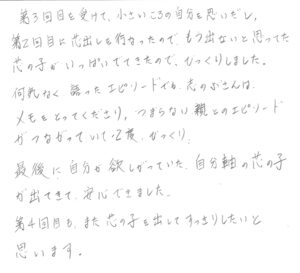 第3回目を受けて、小さいころの自分を思いだし、
第2回目に芯出しを行なったので、もう出ないと思ってた
芯の子がいっぱいでてきたので、びっくりしました。
何気なく語ったエピソードでも、志のぶさんは、
メモをとってくださり、つまらない親とのエピソード
がつながっていて2度、びっくり。
最後に自分が欲しがっていた、自分軸の芯の子
が出てきて、安心できました。
第4回目も、また芯の子を出してすっきりしたいと
思います。